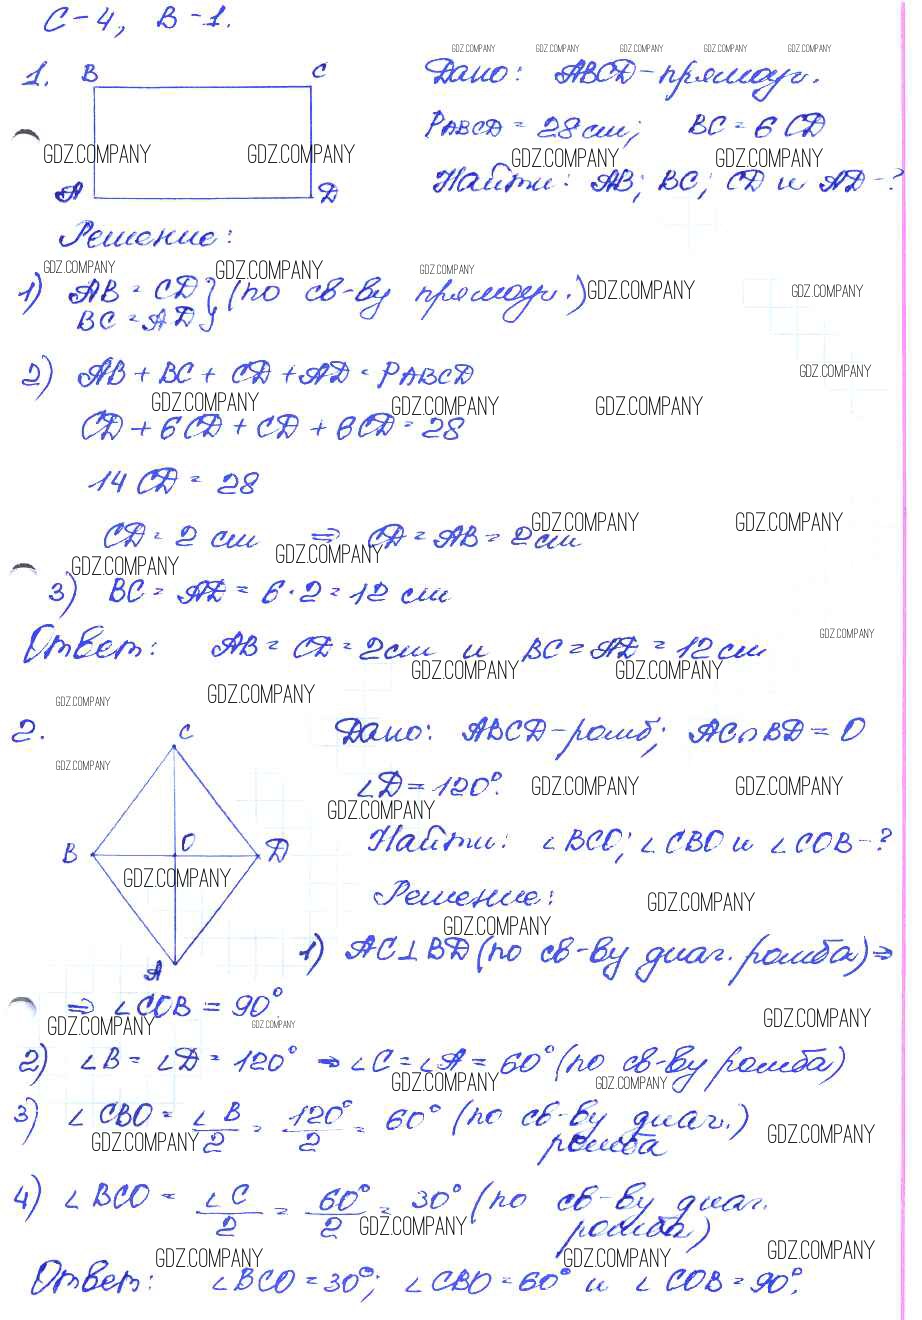 С-4, В-1.
GDZ.COMPANY GDZ.COMPANY GDZ.COMPANY GDZ.COMPANY GDZ.COMPANY
1. B C Дано: ABCD-прямоуг.
P ABCD = 28 см; BC = 6 CD
GDZ.COMPANY GDZ.COMPANY GDZ.COMPANY GDZ.COMPANY
A D Найти: AB; BC; CD и AD-?
Решение:
GDZ.COMPANY GDZ.COMPANY GDZ.COMPANY
1) AB = CD } (по св-ву прямоуг.) GDZ.COMPANY GDZ.COMPANY
BC = AD
2) AB + BC + CD + AD = P ABCD GDZ.COMPANY
GDZ.COMPANY GDZ.COMPANY GDZ.COMPANY
CD + 6CD + CD + 6CD = 28
14 CD = 28
GDZ.COMPANY GDZ.COMPANY
CD = 2 см ⇒ CD = AB = 2 см
GDZ.COMPANY GDZ.COMPANY
3) BC = AD = 6 · 2 = 12 см
GDZ.COMPANY
Ответ: AB = CD = 2 см и BC = AD = 12 см
GDZ.COMPANY GDZ.COMPANY
GDZ.COMPANY GDZ.COMPANY
2. C Дано: ABCD-ромб; AC∩BD = O
GDZ.COMPANY
∠D = 120°. GDZ.COMPANY GDZ.COMPANY
GDZ.COMPANY
B O D Найти: ∠BCO; ∠CBO и ∠COB-?
GDZ.COMPANY
Решение: GDZ.COMPANY
GDZ.COMPANY
A 1) AC⊥BD (по св-ву диаг. ромба) ⇒
⇒ ∠COB = 90°.
GDZ.COMPANY GDZ.COMPANY GDZ.COMPANY
2) ∠B = ∠D = 120° ⇒ ∠C = ∠A = 60° (по св-ву ромба)
GDZ.COMPANY GDZ.COMPANY
3) ∠CBO = ∠B/2 = 120°/2 = 60° (по св-ву диаг.)
GDZ.COMPANY ромба GDZ.COMPANY
4) ∠BCO = ∠C/2 = 60°/2 = 30° (по св-ву диаг.
GDZ.COMPANY ромба)
GDZ.COMPANY GDZ.COMPANY GDZ.COMPANY
Ответ: ∠BCO = 30°; ∠CBO = 60° и ∠COB = 90°.